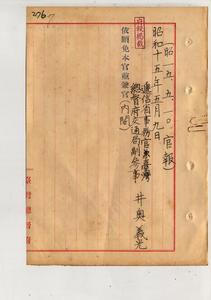 276
府報掲載
(昭一五、五、一〇官報)
昭和十五年五月九日
逓信省事務官兼臺灣
總督府交通局副參事
井奥義光
依願免本官竝兼官(内閣)
臺灣總督府